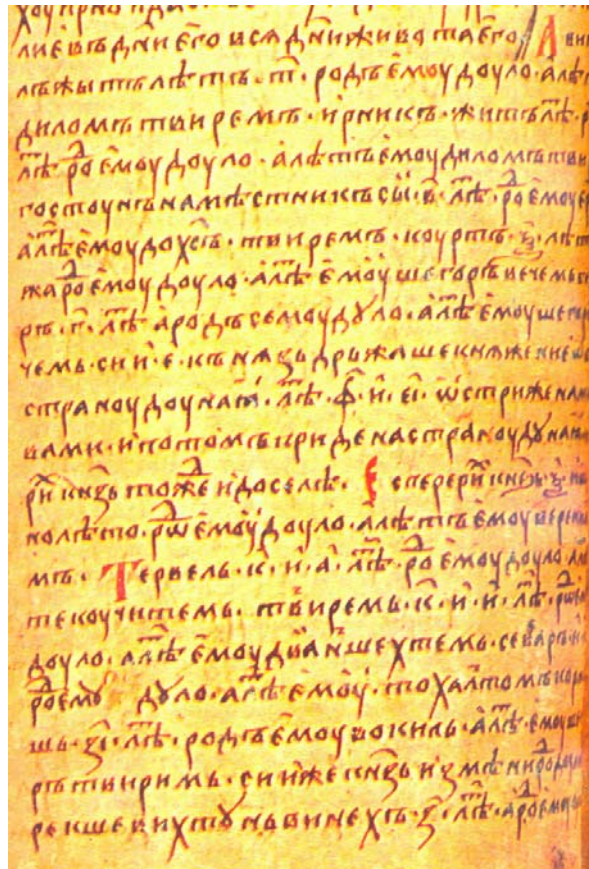 лиѐвъ дн҃иѐго вся дн҃и живота ѐго// Ави
лъ жытъ лѣтъ · т҃ · родъ ѐмоу доуло · а лѣ
диломъ твиремъ · ирникъ · житъ лѣⷮ ·
лѣⷮ · роⷣ ѐмоу доуло · а лѣтъ ѐмоу диломъ тви
гостоунъ намѣстникъ сы · в҃ · лѣⷮ · роⷣ ѐмоу
а лѣⷮ ѐмоу дохсъ · твиремъ · коуртъ · ѯ҃ · лѣт
жа роⷣ ѐмоу доуло · а лѣⷮ ѐмоу шегоръ вечемь
ръ · г҃ · лѣⷮ а родъ семоу дуло · а лѣⷮ ѐмоу шего
чемь · сии · е҃ · кънязь дръжаше княжение
страноу доуная · лѣⷮ · ф҃ · и · е҃і · ѡстриженами
вами · и потомъ приде на странѹ дунаи
рїи кнѕь тожⷣе и доселѣ · Есперерїи кнѕь · ѯ҃ ·
нолѣто · рⷣѡ ѐмоу доуло · а лѣтъ ѐмоу верени
мъ · Тервель · к҃ · и · а҃ · лѣⷮ · роⷣ ѐмоу доуло ·
текоучитемь · твиремь · к҃ · и · и҃ · лѣⷮ · рⷣѡ
доуло · а лѣⷮ ѐмоу дваншехтемь · севаръ ·
роⷣ ѐмѹ дуло · а лѣⷮ ѐмоу · тохалтомъ кор
шь · з҃і · лѣⷮ · родъ ѐмоу вокиль · а лѣⷮ · ѐмоу
ръ твиримь · сии же кнѕь измѣни роⷣ доу
рекше вихтунь винехъ · ѕ҃ · лѣⷮ · а роⷣ ѐмоу